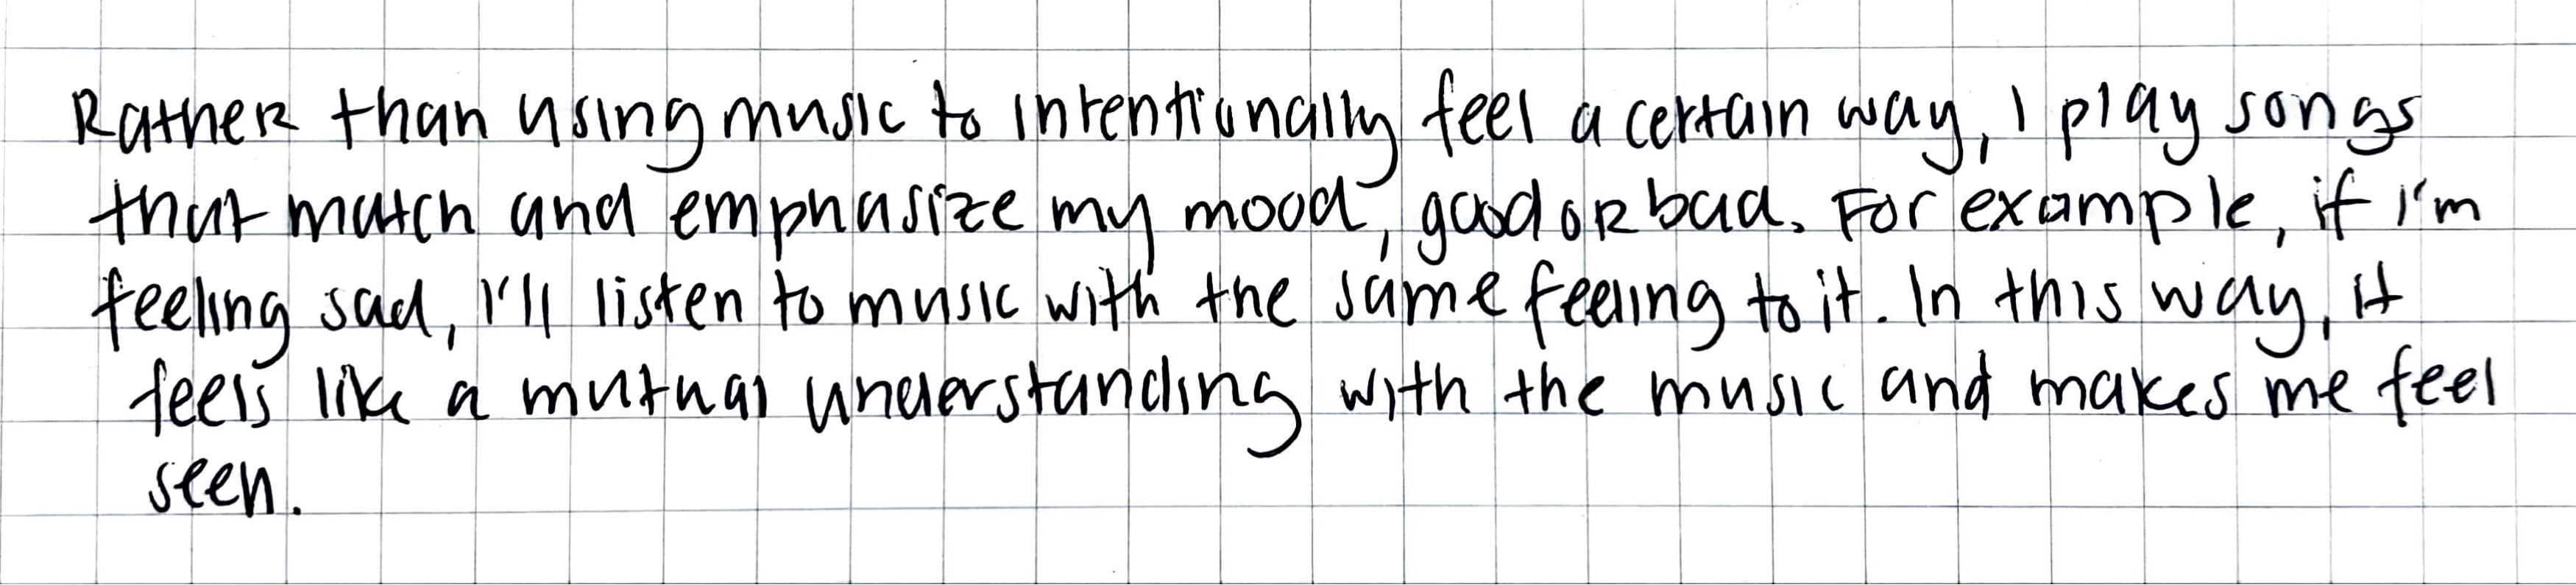 Rather than using music to intentionally feel a certain way, I play songs
that match and emphasize my mood, good or bad. For example, if I'm
feeling sad, I'll listen to music with the same feeling to it. In this way, it
feels like a mutual understanding with the music and makes me feel
seen.